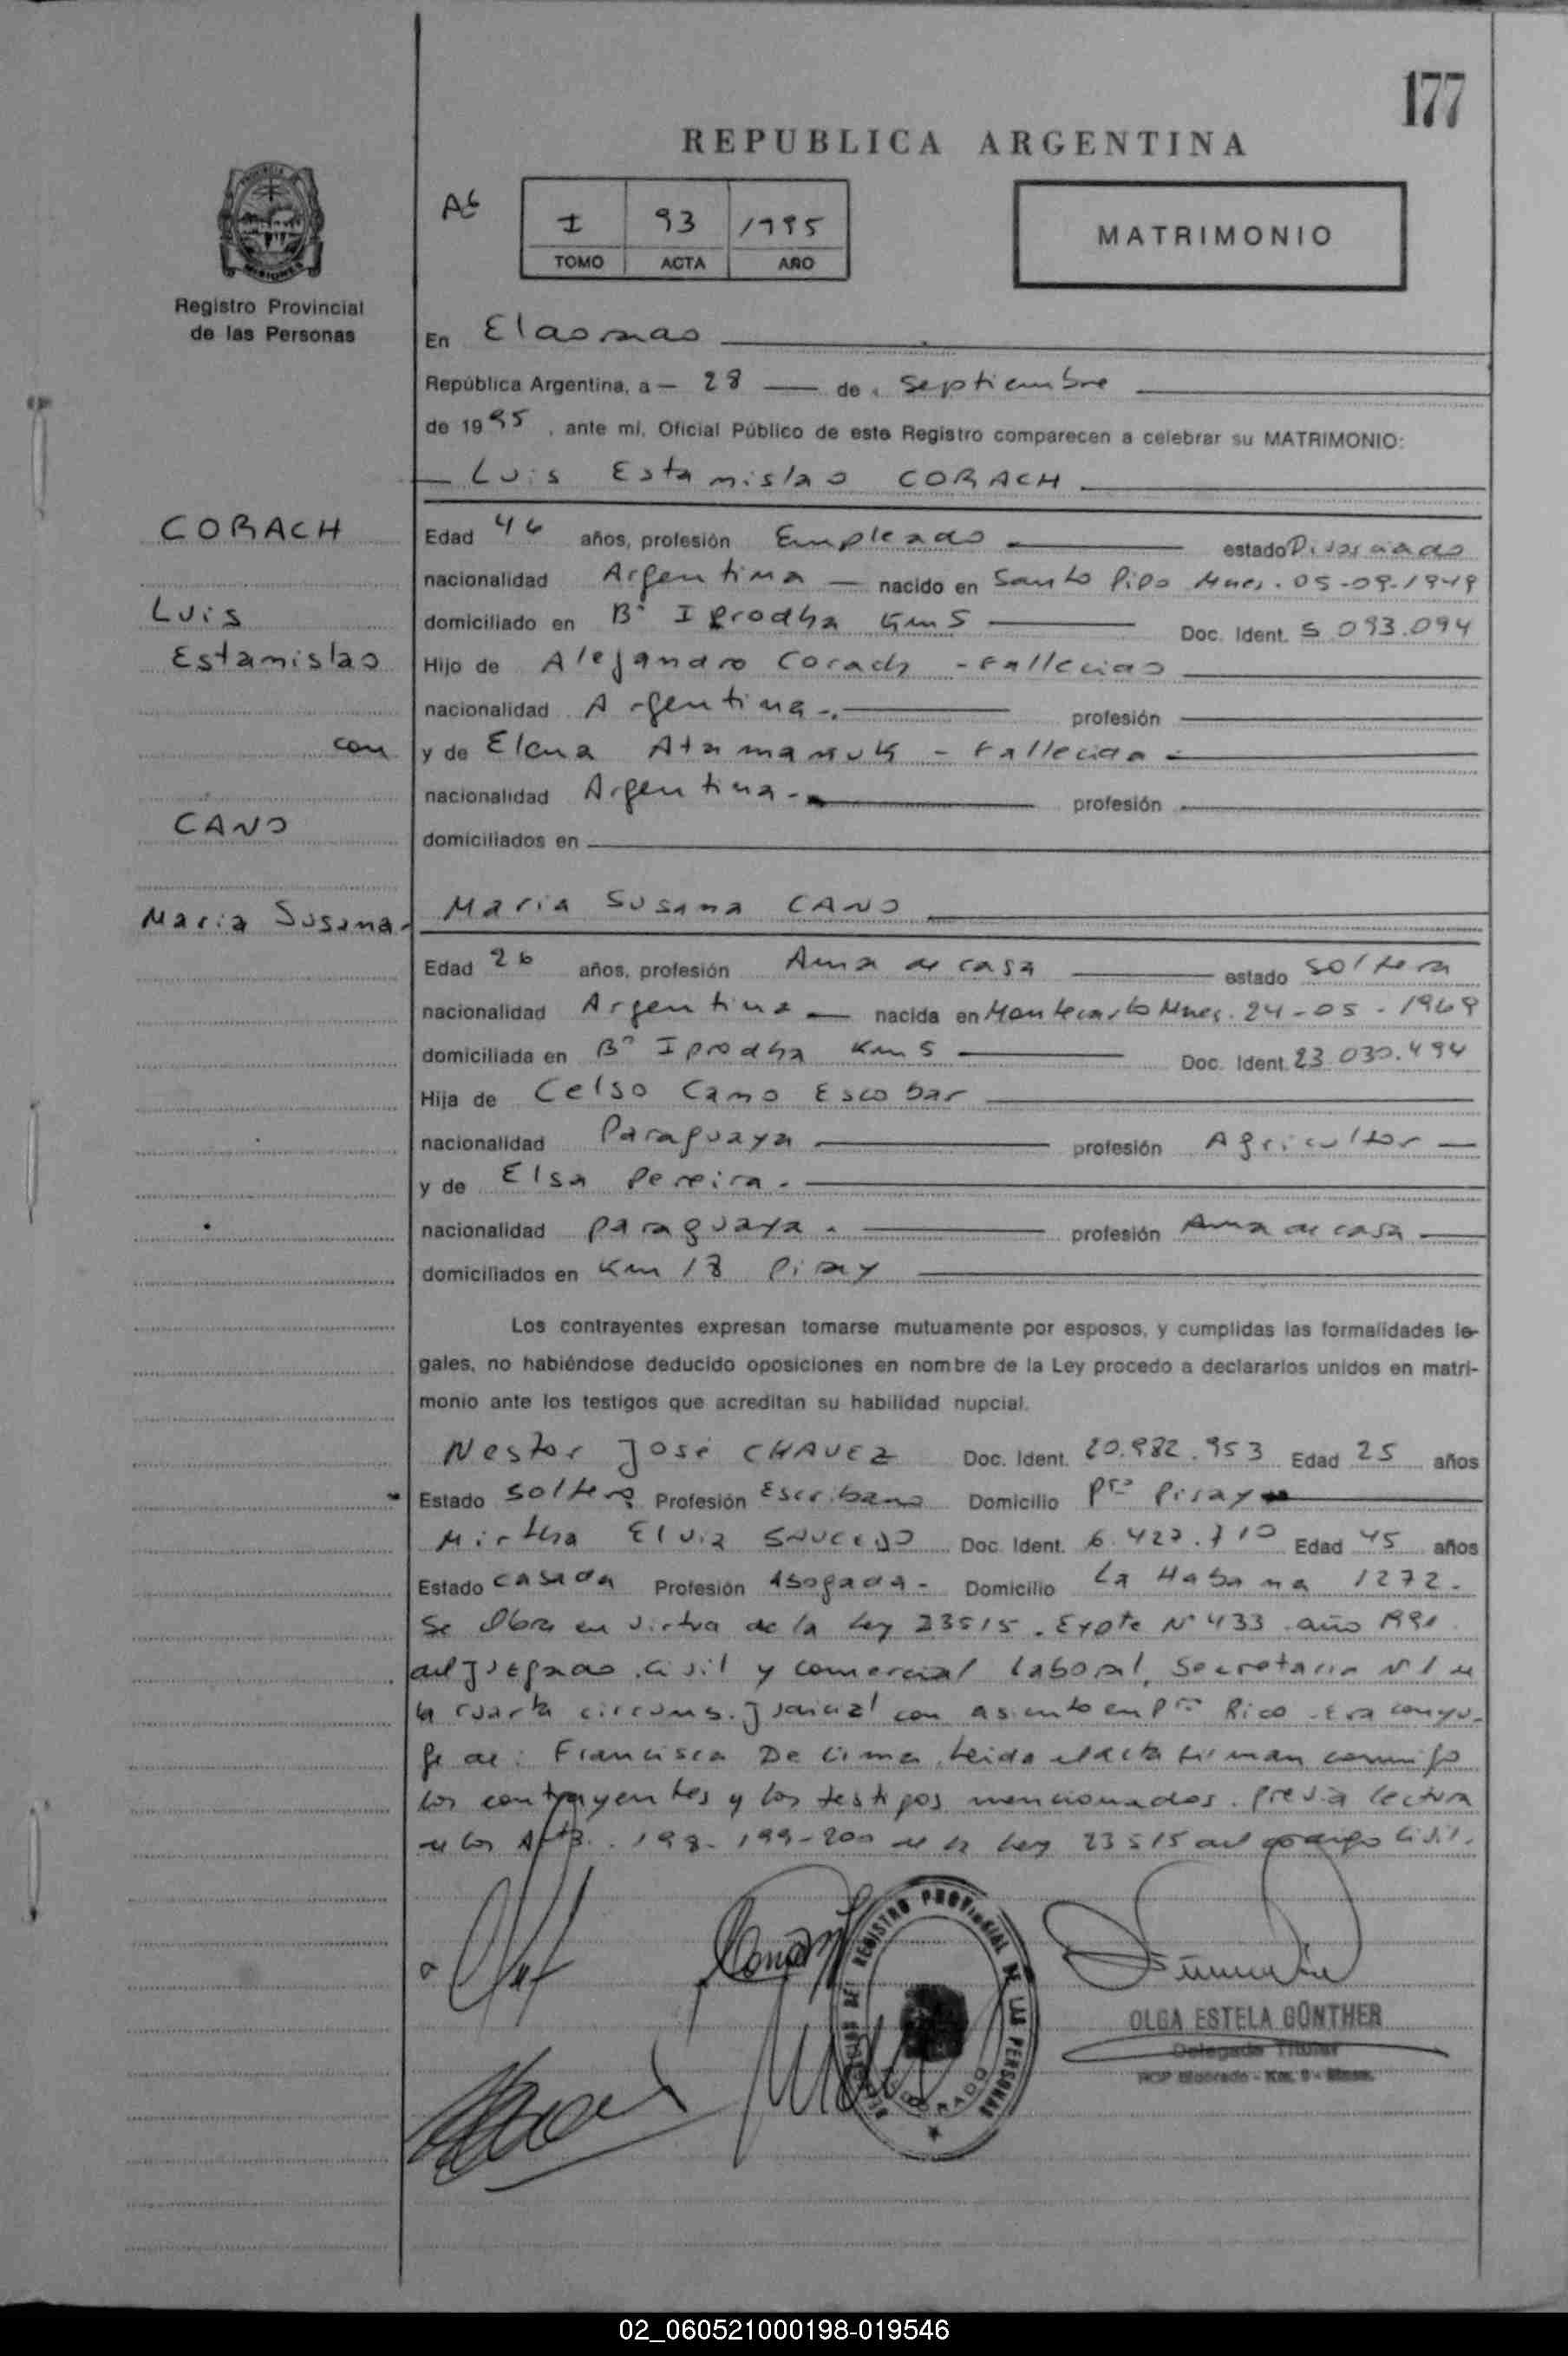 177
REPUBLICA ARGENTINA
I 93 1995
TOMO ACTA AÑO
MATRIMONIO
PROVINCIA
MISIONES
Registro Provincial
de las Personas
En Eldorado
República Argentina, a — 28 — de Septiembre
de 1995, ante mí, Oficial Público de este Registro comparecen a celebrar su MATRIMONIO:
Luis Estanislao CORACH
CORACH
Luis
Estanislao
con
CANO
Maria Susana
Edad 46 años, profesión Empleado estado Divorciado
nacionalidad Argentina — nacido en Santo Pipo Mnes. 05-09-1949
domiciliado en B° Iprodha Km 5 Doc. Ident. 5.093.094
Hijo de Alejandro Corach - Fallecido
nacionalidad Argentina-. profesión
y de Elena Atamanuk - Fallecida
nacionalidad Argentina- profesión
domiciliados en
Maria Susana CANO
Edad 26 años, profesión Ama de casa estado soltera
nacionalidad Argentina — nacida en Montecarlo Mnes. 24-05-1969
domiciliada en B° Iprodha Km 5 Doc. Ident. 23.030.494
Hija de Celso Cano Escobar
nacionalidad Paraguaya profesión Agricultor —
y de Elsa Pereira.
nacionalidad paraguaya. profesión Ama de casa
domiciliados en Km 18 Piray
Los contrayentes expresan tomarse mutuamente por esposos, y cumplidas las formalidades le-
gales, no habiéndose deducido oposiciones en nombre de la Ley procedo a declararlos unidos en matri-
monio ante los testigos que acreditan su habilidad nupcial.
Nestor José CHAVEZ Doc. Ident. 20.982.953 Edad 25 años
Estado soltero Profesión Escribano Domicilio Pto Piray
Mirtha Elvia SAUCEDO Doc. Ident. 6.427.710 Edad 45 años
Estado casada Profesión Abogada- Domicilio La Habana 1272.
Se Obra en virtud de la Ley 23515. Expte N° 433 año 1991
del Juzgado Civil y comercial laboral, Secretaria N° 1 de
la cuarta circuns. Judicial con asiento en Pto Rico. Era conyu-
ge de: Francisca De Lima. Leida el acta firman conmigo
los contrayentes y los testigos mencionados. previa lectura
de los Arts. 198-199-200 de la Ley 23515 del codigo Civil.
REGISTRO PROVINCIAL DE LAS PERSONAS
OLGA ESTELA GÜNTHER
Delegada Titular
RCP Eldorado - Km. 9 - Mnes.
02_060521000198-019546